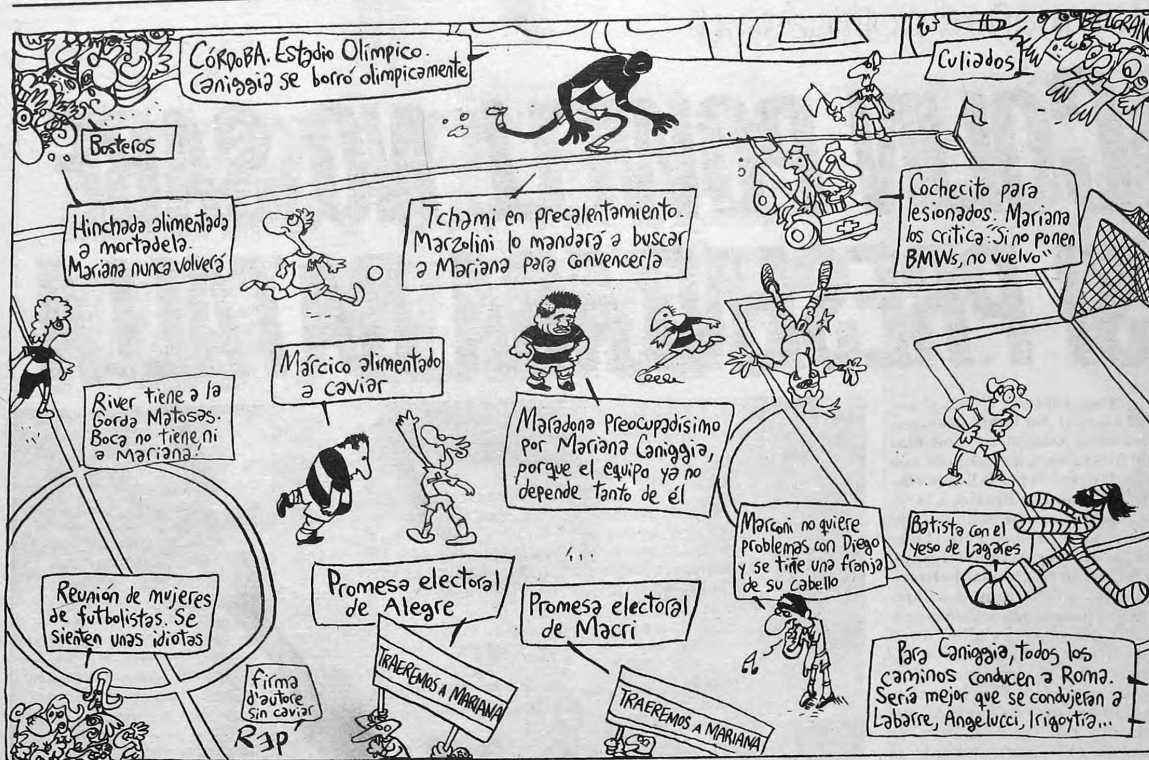 CÓRDOBA. Estadio Olímpico.
Caniggia se borró olimpicamente
BELGRANO
Culiados
Bosteros
Hinchada alimentada
a mortadela.
Mariana nunca volverá
Tchami en precalentamiento.
Marzolini lo mandará a buscar
a Mariana para convencerla
Cochecito para
lesionados. Mariana
los critica: "Si no ponen
BMWs, no vuelvo"
River tiene a la
Gorda Matosas.
Boca no tiene ni
a Mariana!
Márcico alimentado
a caviar
Maradona Preocupadísimo
por Mariana Caniggia,
porque el equipo ya no
depende tanto de él
Marconi no quiere
problemas con Diego
y se tiñe una franja
de su cabello
Batista con el
yeso de Lagares
Reunión de mujeres
de futbolistas. Se
sienten unas idiotas
firma
d'autore
sin caviar
REP
Promesa electoral
de Alegre
TRAEREMOS A MARIANA
Promesa electoral
de Macri
TRAEREMOS A MARIANA
Para Caniggia, todos los
caminos conducen a Roma.
Sería mejor que se condujeran a
Labarre, Angelucci, Irigoytía...